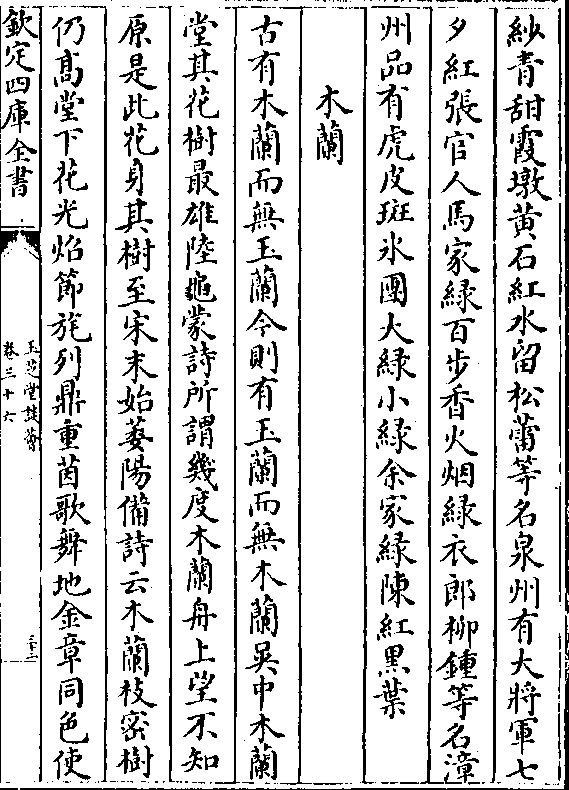 紗青甜霞墩黄石紅水留松蕾等名泉州有大將軍七
夕紅張官人馬家緑百步香火烟緑衣郎柳鍾等名漳
州品有虎皮斑氷團大緑小緑余家緑陳紅黒葉
木蘭
古有木蘭而無玉蘭今則有玉蘭而無木蘭吴中木蘭
堂其花樹最雄陸龜蒙詩所謂幾度木蘭舟上望不知
原是此花身其樹至宋末始萎陽備詩云木蘭枝密樹
仍髙堂下花光焰節旄列鼎重茵歌舞地金章同色使
欽定四庫全書
玉芝堂談薈
卷三十六
三十二